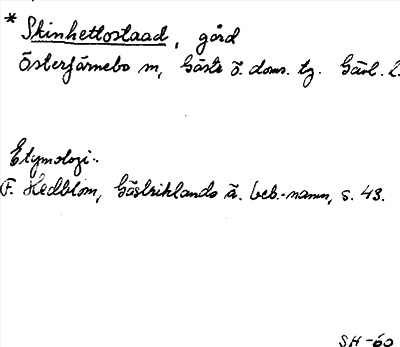 * Skinhettostaad, gård
Österfärnebo sn, Gästr ö. doms. tg. Gävl. l.
Etymologi:
F. Hedblom, Gästriklands ä. beb.-namn, s. 43.
SH -60